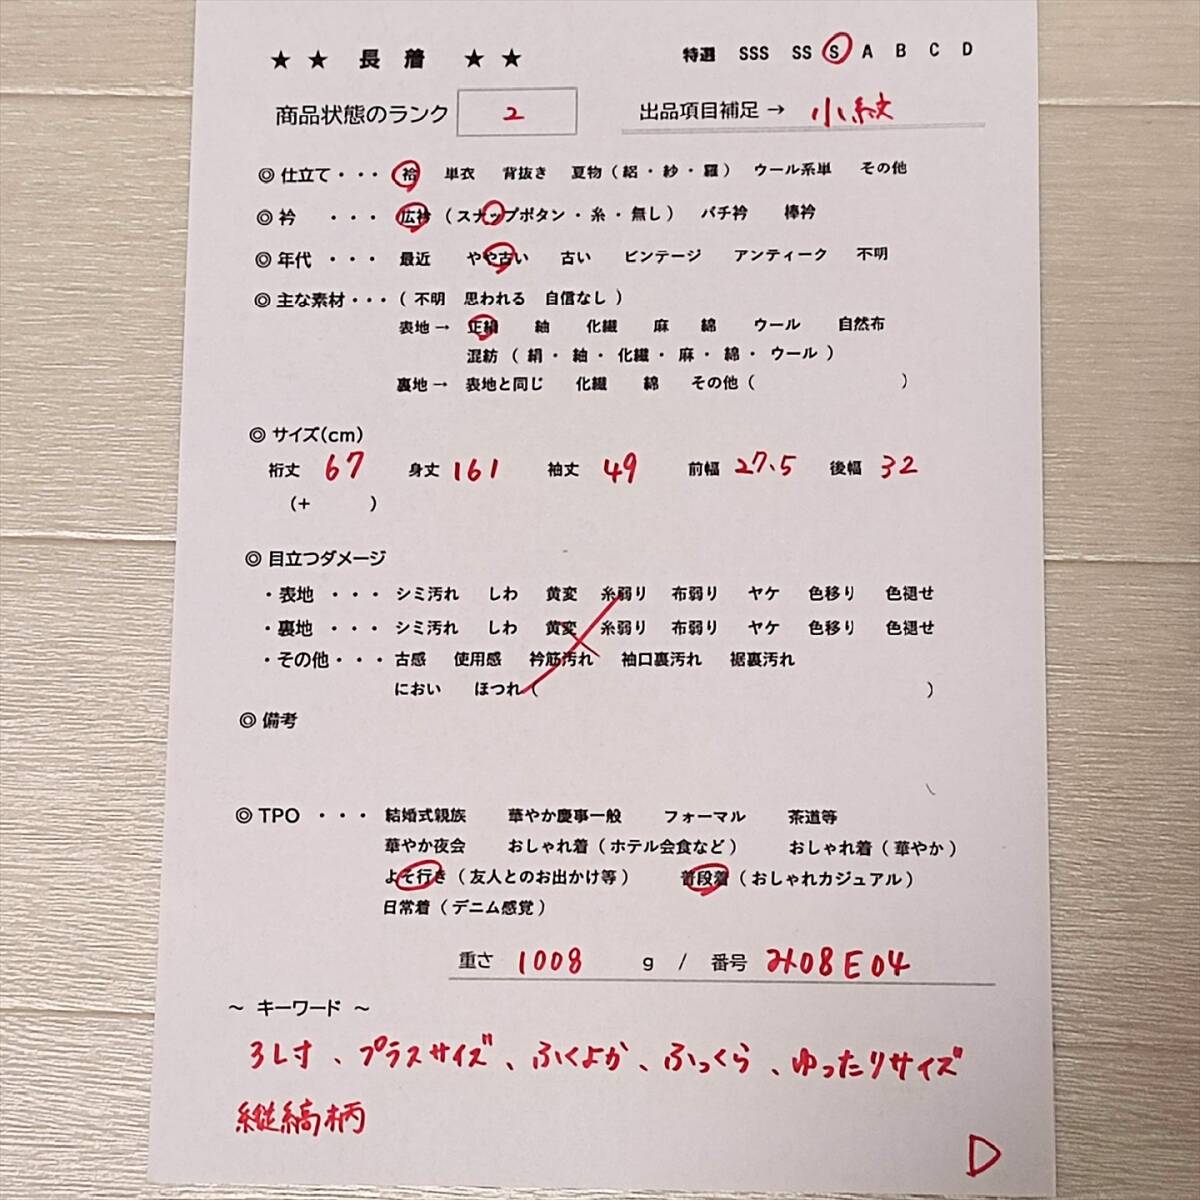 ★ ★ 長 着 ★ ★ 特選 SSS SS S A B C D
商品状態のランク 2 出品項目補足→ 小紋
◎ 仕立て・・・ 袷 単衣 背抜き 夏物（絽・紗・羅） ウール系単 その他
◎ 衿 ・・・ 広衿（スナップボタン・糸・無し） バチ衿 棒衿
◎ 年代 ・・・ 最近 やや古い 古い ビンテージ アンティーク 不明
◎ 主な素材・・・（ 不明 思われる 自信なし ）
表地→ 正絹 紬 化繊 麻 綿 ウール 自然布
混紡（ 絹・紬・化繊・麻・綿・ウール ）
裏地→ 表地と同じ 化繊 綿 その他（ ）
◎ サイズ(cm)
裄丈 67 身丈 161 袖丈 49 前幅 27.5 後幅 32
（+ ）
◎ 目立つダメージ
・表地 ・・・ シミ汚れ しわ 黄変 糸弱り 布弱り ヤケ 色移り 色褪せ
・裏地 ・・・ シミ汚れ しわ 黄変 糸弱り 布弱り ヤケ 色移り 色褪せ
・その他・・・ 古感 使用感 衿筋汚れ 袖口裏汚れ 裾裏汚れ
におい ほつれ（ ）
◎ 備考
◎ TPO ・・・ 結婚式親族 華やか慶事一般 フォーマル 茶道等
華やか夜会 おしゃれ着（ホテル会食など） おしゃれ着（華やか）
よそ行き（友人とのお出かけ等） 普段着（おしゃれカジュアル）
日常着（デニム感覚）
重さ 1008 g / 番号 み08E04
～ キーワード ～
3L寸、プラスサイズ、ふくよか、ふっくら、ゆったりサイズ
縦縞柄
D